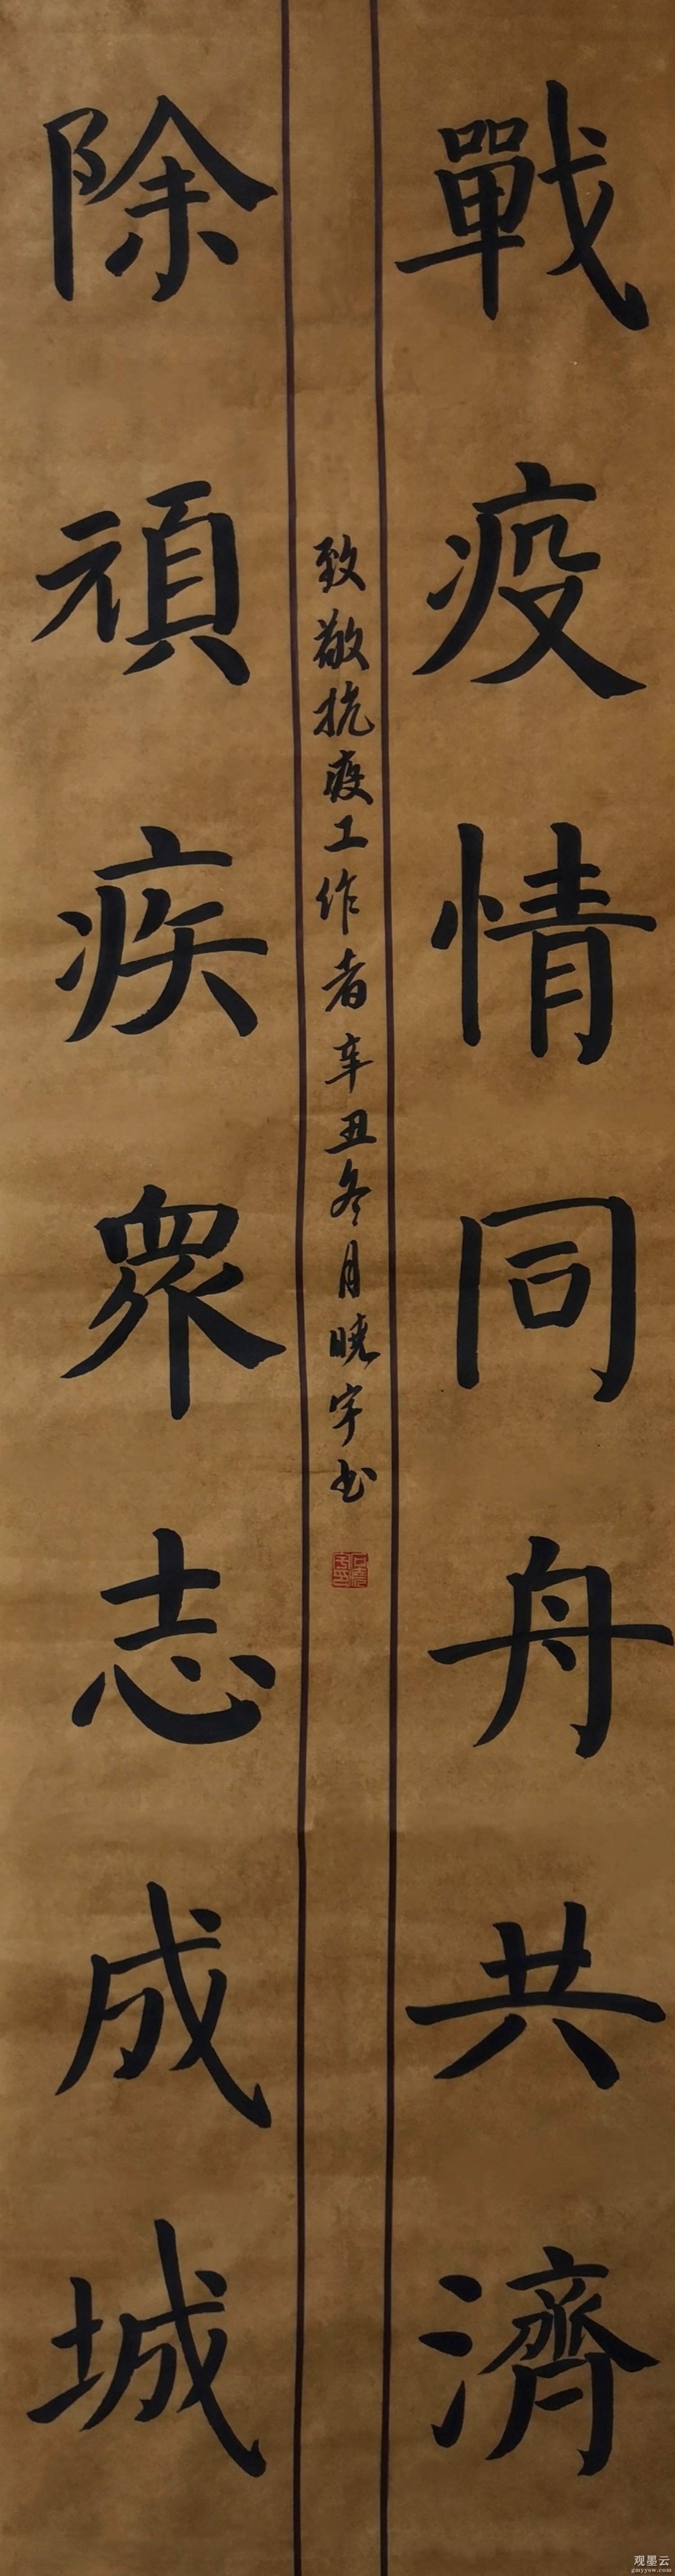 戰疫情同舟共濟
致敬抗疫工作者辛丑冬月曉宇书
除頑疾眾志成城
观墨云
gmyyow.com